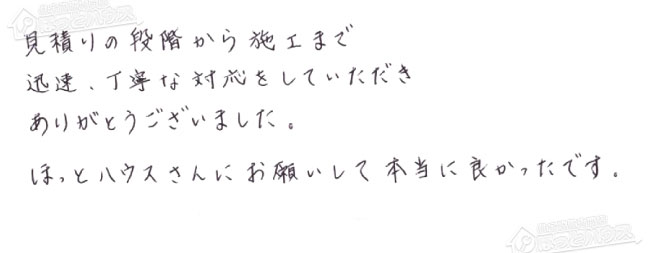 見積りの段階から施工まで
迅速、丁寧な対応をしていただき
ありがとうございました。
ほっとハウスさんにお願いして本当に良かったです。